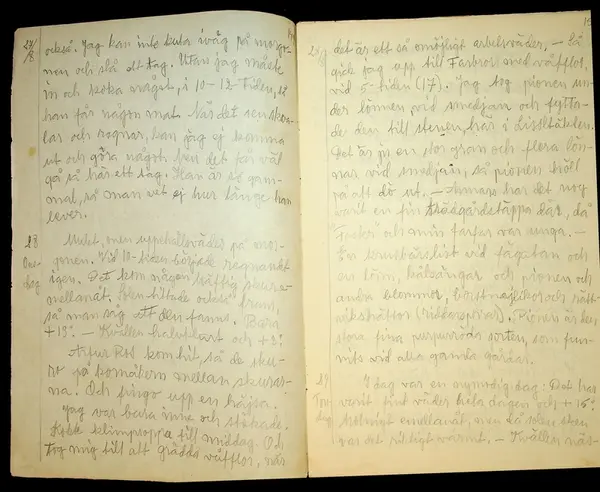 27/8
också. Jag kan inte kuta iväg på morgo-
nen och slå ett tag. Utan jag måste
in och koka något, i 10-12-tiden, så
han får någon mat. När det sen skor-
lar och regnar, kan jag ej komma
ut och göra något. Men det får väl
gå så här ett tag. Han är så gam-
mal, så man vet ej hur länge han
lever.
28 Ons-dag
Mulet, men uppehållsväder på mor-
gonen. Vid 10-tiden började regnandet
igen. Det kom någon häftig skur
mellanåt. Solen tittade också fram,
så man såg att den fanns. Bara
+13°. — Kvällen halvklart och +3°
Artur Ros kom hit, så de sku-
ro på kornåkern mellan skurar-
na. Och fingo upp en hässja.
Jag var bara inne och stökade.
Kokte klimpsoppa till middag. Och
tog mig till att grädda våfflor, när
det är ett så omöjligt arbetsväder, — Så
gick jag upp till Farbror med våfflor,
vid 5-tiden (17). Jag tog pionen un-
der lönnen, vid smedjan och flytta-
de den till stenen, här i
Det är ju en stor gran och flera lön-
nar vid smedjan, så pionen höll
på att dö ut. — har det nog
varit en fin trädgårdstäppa där, då
Faster och min farfar var unga. —
En krusbärslist vid fägatan och
en lönn, kälsängar och pionen och
andra blommor, borstnejlikor och nätt-
(riddarsporrar). Pionen är den
stora fina purpurröda sorten, som fun-
nits vid alla gamla gårdar.
29 Tors-dag
I dag var en rymdig dag: Det har
varit fint väder hela dagen och +15°
Molnigt emellanåt, men så solen sken
var det riktigt varmt. — Kvällen näs-